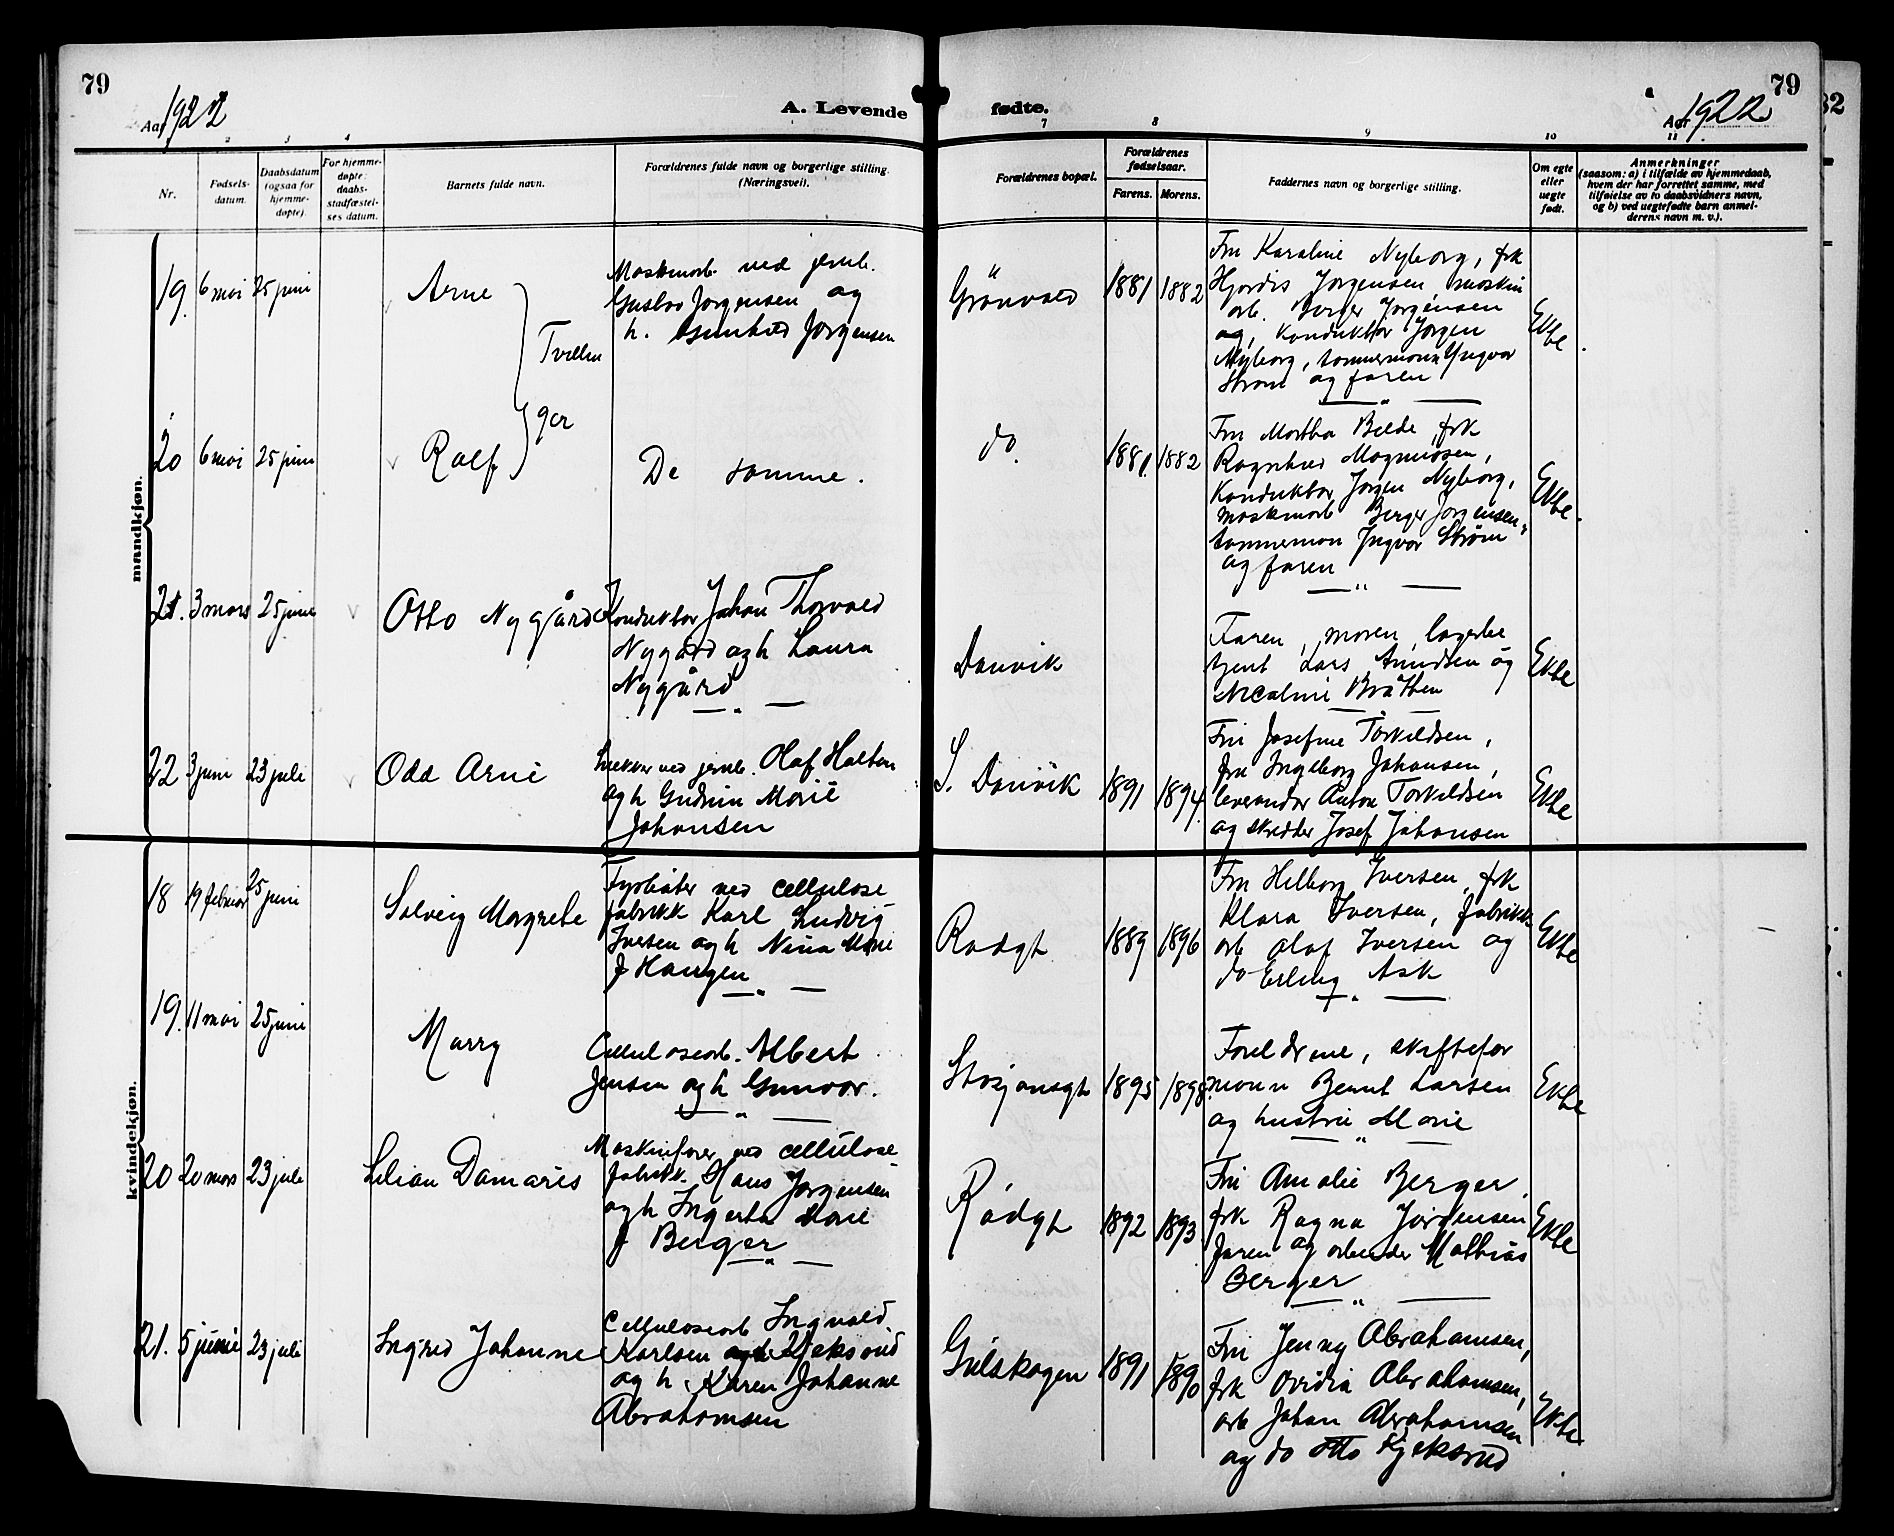 79
Aar 1922
A. Levende
fødte.
Aar 1922
79
82
2 3 4
7 8 9 10 11
Nr.
Fødsels-
datum.
Daabsdatum
(ogsaa for
hjemme-
døpte).
For hjemme-
døpte:
daabs-
stadfæstel-
ses datum.
Barnets fulde navn.
Forældrenes fulde navn og borgerlige stilling.
(Næringsvei).
Forældrenes bopæl.
Forældrenes
fødselsaar.
Farens. Morens.
Faddernes navn og borgerlige stilling.
Om egte
eller
uegte
født.
Anmerkninger
(saasom: a) i tilfælde av hjemmedaab,
hvem der har forrettet samme, med
tilføielse av to daabsvidners navn,
og b) ved uegtefødte barn anmel-
derens navn m. v.).
mandkjøn.
19. 6 mai 25 juni
Arne
Tvillin
Maskinarb. ved jernb.
Gustav Jørgensen og
h. Gunhild Jørgensen
Grønvold
1881 1882
Fru Karoline Nyborg, frk
Hjørdis Jørgensen maskin
arb. Berger Jørgensen
og, konduktør Jørgen
Nyborg, tømmermann Yngvar
Strøm og faren
Ekte
20 6 mai 25 juni
Rolf
ger
De samme.
do
1881. 1882
Fru Martha Bilde, frk
Ragnhild Magnussen,
Konduktør Jørgen Nyborg,
maskinarb Berger Jørgensen,
tømmerman Yngvar Strøm
og faren
Ekte.
21. 3 mars 25 juni
Otto Nygård
Konduktør Johan Thorvald
Nygård og h Laura
Nygård
Danvik
Faren, moren, lagerbe
tjent Lars Amundsen og
Nicoline Bråthen
Ekte
22 3 juni 23 juli
Odd Arne
Snekker ved jernb. Olaf Holten
og h Gudrun Marie
Johansen
S. Danvik
1891 1894.
Fru Josefine Torkildsen,
fru Ingeborg Johansen,
leverandør Anton Torkildsen
og skredder Josef Johansen
Ekte
kvindekjøn.
18 19 februar 25 juni
Solveig Margrethe
Fyrbøter ved cellulose
fabrikk Karl Ludvig
Iversen og h Nina Marie
f Haugen
Rødgt
1889 1896
Fru Hilborg Iversen, frk
Klara Iversen, fabrikk
arb Olaf Iversen og
do Erling Ask
Ekte
19. 11 mai 25 juni
Marry
Cellulosearb. Albert
Jensen og h Gunvor.
Stasjonsgt
1895 1898.
Foreldrene, skiftefor
mann Bernt Larsen
og hustru Marie
Ekte
20 20 mars 23 juli
Lilian Damaris
Maskinfører ved cellulose
fabrikk. Hans Jørgensen
og h Ingerta Marie
f Berger
Rødgt
1892 1893
Fru Amalie Berger,
frk Ragna Jørgensen
faren og arbeider Mathias
Berger
Ekte
21. 5 junie 23 juli
Ingrid Johanne
Cellulosearb Ingvald
Karlsen Kjeksrud
og h. Karen Johanne
Abrahamsen
Gulskogen
1891 1890
Fru Jenny Abrahamsen,
frk Ovidia Abrahamsen,
arb Johan Abrahamsen
og do Otto Kjeksrud
Ekte